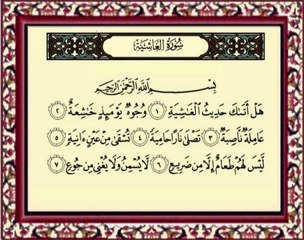 سُورَةُ الغَاشِيَةِ
بِسْمِ اللَّهِ الرَّحْمَٰنِ الرَّحِيمِ
هَلْ أَتَىٰكَ حَدِيثُ الْغَٰشِيَةِ ١ وُجُوهٌ يَوْمَئِذٍ خَٰشِعَةٌ ٢
عَامِلَةٌ نَّاصِبَةٌ ٣ تَصْلَىٰ نَارًا حَامِيَةً ٤ تُسْقَىٰ مِنْ عَيْنٍ ءَانِيَةٍ ٥
لَّيْسَ لَهُمْ طَعَامٌ إِلَّا مِن ضَرِيعٍ ٦ لَّا يُسْمِنُ وَلَا يُغْنِى مِن جُوعٍ ٧